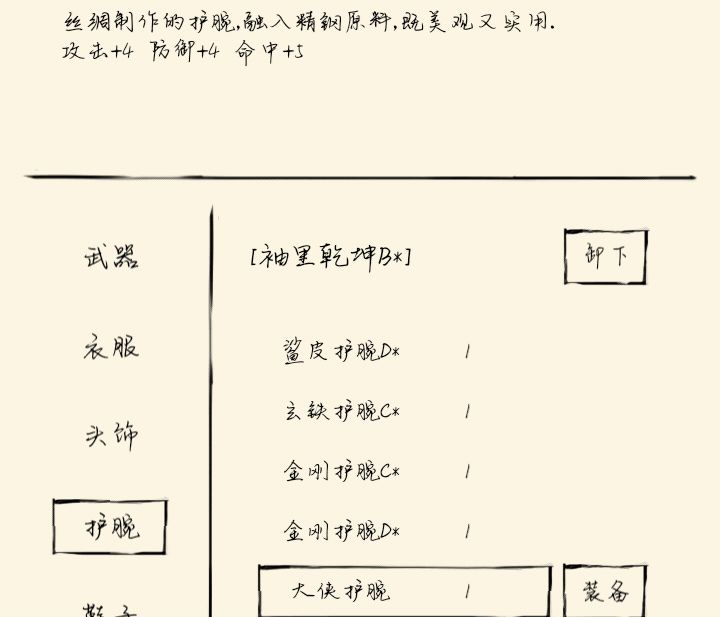 丝绸制作的护腕,融入精钢原料,既美观又实用.
攻击+4 防御+4 命中+5
武器
[袖里乾坤B*]
卸下
衣服
鲨皮护腕D* 1
玄铁护腕C* 1
头饰
金刚护腕C* 1
护腕
金刚护腕D* 1
大侠护腕 1
装备